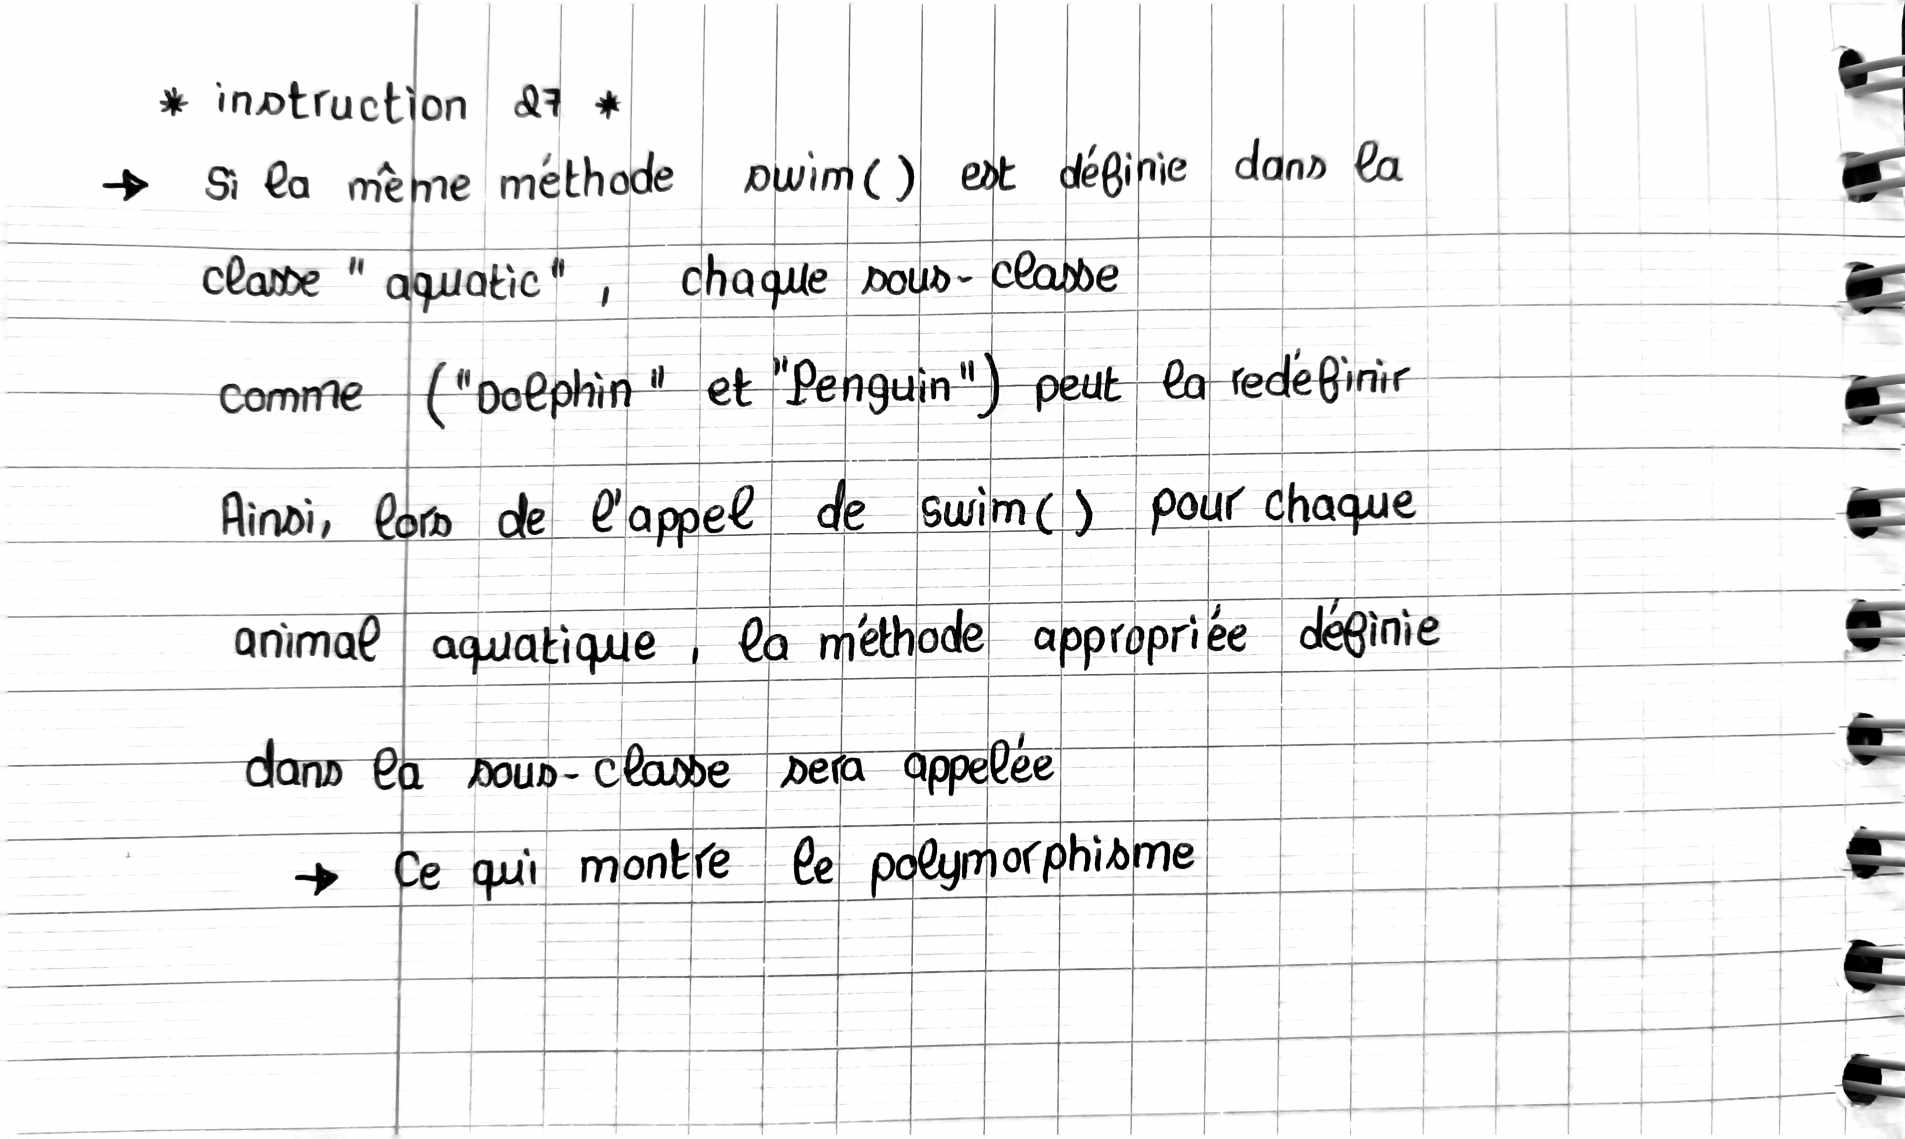 * instruction 27 *
→ Si la même méthode swim() est définie dans la
classe "aquatic", chaque sous-classe
comme ("Dolphin" et "Penguin") peut la redéfinir
Ainsi, lors de l'appel de swim() pour chaque
animal aquatique, la méthode appropriée définie
dans la sous-classe sera appelée
→ Ce qui montre le polymorphisme